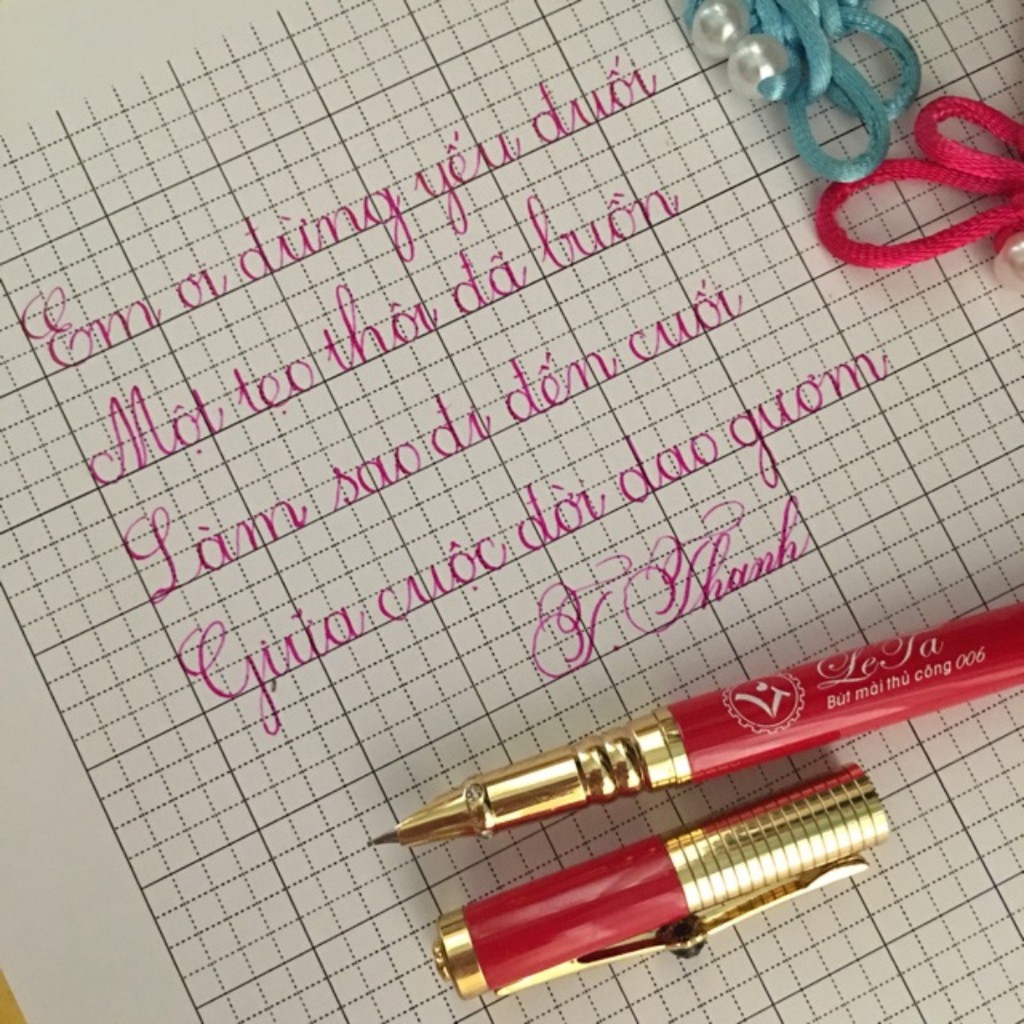 Em ơi đừng yếu đuối
Một tẹo thôi đã buồn
Làm sao đi đến cuối
Giữa cuộc đời dao gươm
T. Thanh
LeTa
Bút mài thủ công 006